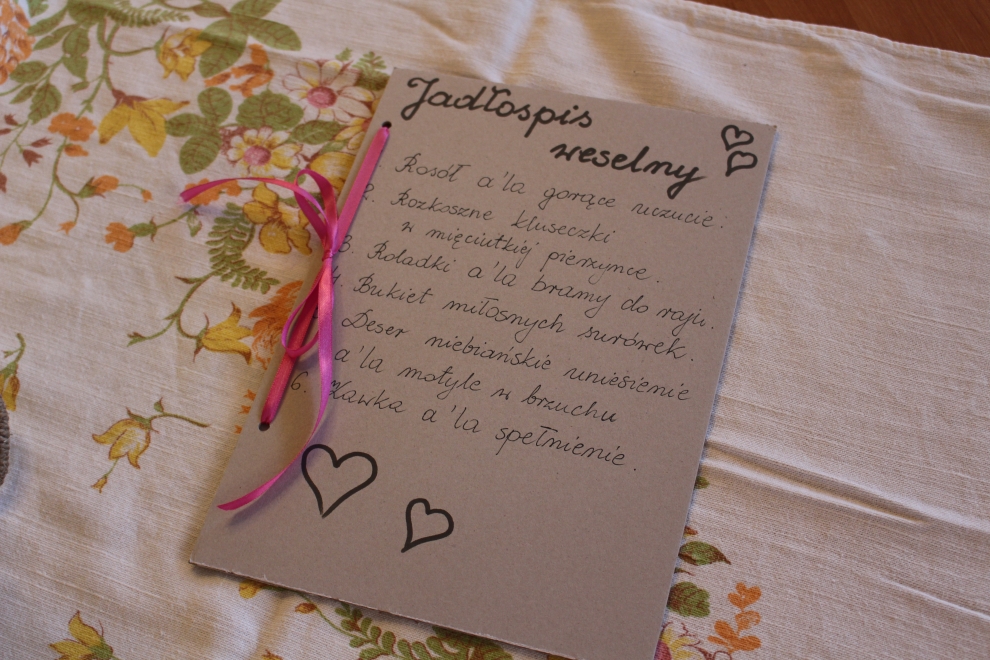 Jadłospis
weselny
Rosół a'la gorące uczucie.
2. Rozkoszne kluseczki
w mięciutkiej pierzynce.
3. Roladki a'la bramy do raju.
4. Bukiet miłosnych surówek.
Deser niebiańskie uniesienie
a'la motyle w brzuchu
6. Kawka a'la spełnienie.